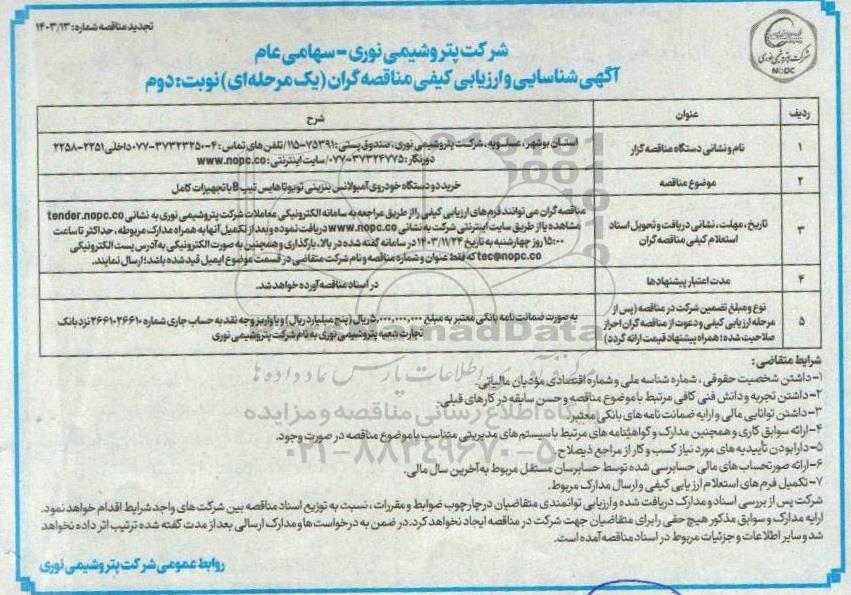 تجدید مناقصه شماره: ۱۴۰۳/۱۳
شرکت پتروشیمی نوری
NOPC
شرکت پتروشیمی نوری - سهامی عام
آگهی شناسایی و ارزیابی کیفی مناقصه گران (یک مرحله‌ای) نوبت: دوم
ردیف عنوان شرح
۱ نام و نشانی دستگاه مناقصه گزار
استان بوشهر، عسلویه، شرکت پتروشیمی نوری، صندوق پستی: ۷۵۳۹۱-۱۱۵/ تلفن های تماس: ۴-۳۷۳۲۳۲۵۰-۰۷۷ داخلی ۲۲۵۱-۲۲۵۸
دورنگار: ۳۷۳۲۴۷۷۵-۰۷۷/ سایت اینترنتی: www.nopc.co
۲ موضوع مناقصه
خرید دو دستگاه خودروی آمبولانس بنزینی تویوتا هایس تیپ B با تجهیزات کامل
۳ تاریخ، مهلت، نشانی دریافت و تحویل اسناد
استعلام کیفی مناقصه گران
مناقصه گران می توانند فرم های ارزیابی کیفی را از طریق مراجعه به سامانه الکترونیکی معاملات شرکت پتروشیمی نوری به نشانی tender.nopc.co
مشاهده یا از طریق سایت اینترنتی شرکت به نشانی www.nopc.co دریافت نموده و بعد از تکمیل آنها به همراه مدارک مربوطه، حداکثر تا ساعت
۱۵:۰۰ روز چهارشنبه به تاریخ ۱۴۰۳/۱۱/۲۴ در سامانه گفته شده در بالا، بارگذاری و همچنین به صورت الکترونیکی به آدرس پست الکترونیکی
tec@nopc.co که فقط عنوان و شماره مناقصه و نام شرکت متقاضی در قسمت موضوع ایمیل قید شده باشد؛ ارسال نمایند.
۴ مدت اعتبار پیشنهادها
در اسناد مناقصه آورده خواهد شد.
۵ نوع و مبلغ تضمین شرکت در مناقصه (پس از
مرحله ارزیابی کیفی و دعوت از مناقصه گران احراز
صلاحیت شده؛ همراه پیشنهاد قیمت ارائه گردد)
به صورت ضمانت نامه بانکی معتبر به مبلغ ۵,۰۰۰,۰۰۰,۰۰۰ ریال (پنج میلیارد ریال) و یا واریز وجه نقد به حساب جاری شماره ۲۶۶۱۰۲۶۶۱۰ نزد بانک
تجارت شعبه پتروشیمی نوری به نام شرکت پتروشیمی نوری
شرایط متقاضی:
۱- داشتن شخصیت حقوقی، شماره شناسه ملی و شماره اقتصادی مؤدیان مالیاتی.
۲- داشتن تجربه و دانش فنی کافی مرتبط با موضوع مناقصه و حسن سابقه در کارهای قبلی.
۳- داشتن توانایی مالی و ارایه ضمانت نامه های بانکی معتبر.
۴- ارائه سوابق کاری و همچنین مدارک و گواهینامه های مرتبط با سیستم های مدیریتی متناسب با موضوع مناقصه در صورت وجود.
۵- دارا بودن تأییدیه های مورد نیاز کسب و کار از مراجع ذیصلاح.
۶- ارائه صورتحساب های مالی حسابرسی شده توسط حسابرسان مستقل مربوط به آخرین سال مالی.
۷- تکمیل فرم های استعلام ارزیابی کیفی و ارسال مدارک مربوط.
شرکت پس از بررسی اسناد و مدارک دریافت شده و ارزیابی توانمندی متقاضیان در چارچوب ضوابط و مقررات، نسبت به توزیع اسناد مناقصه بین شرکت های واجد شرایط اقدام خواهد نمود.
ارایه مدارک و سوابق مذکور هیچ حقی را برای متقاضیان جهت شرکت در مناقصه ایجاد نخواهد کرد. در ضمن به درخواست ها و مدارک ارسالی بعد از مدت گفته شده ترتیب اثر داده نخواهد
شد و سایر اطلاعات و جزئیات مربوط در اسناد مناقصه آمده است.
روابط عمومی شرکت پتروشیمی نوری
پایگاه اطلاع رسانی مناقصه و مزایده
۰۲۱-۸۸۳۴۹۶۷۰-۵